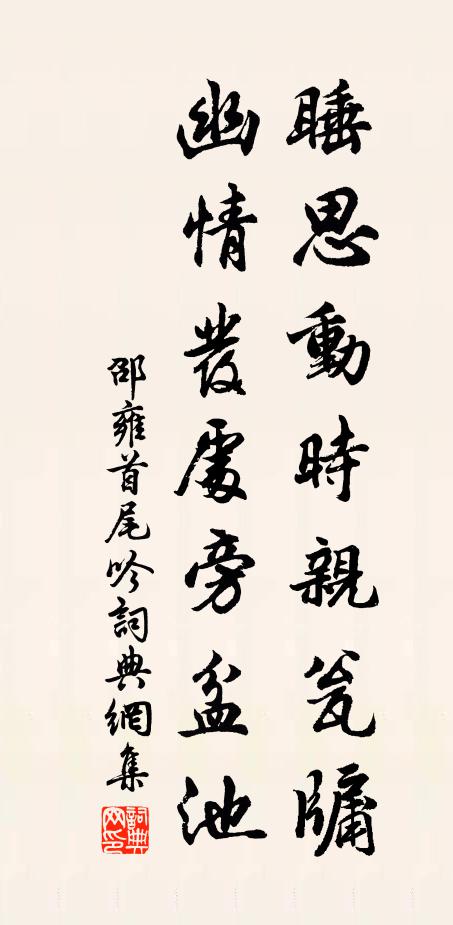 睡思動時親瓮牖
幽情發處旁盆池
邵雍首尾吟詞典網集
詞典网印